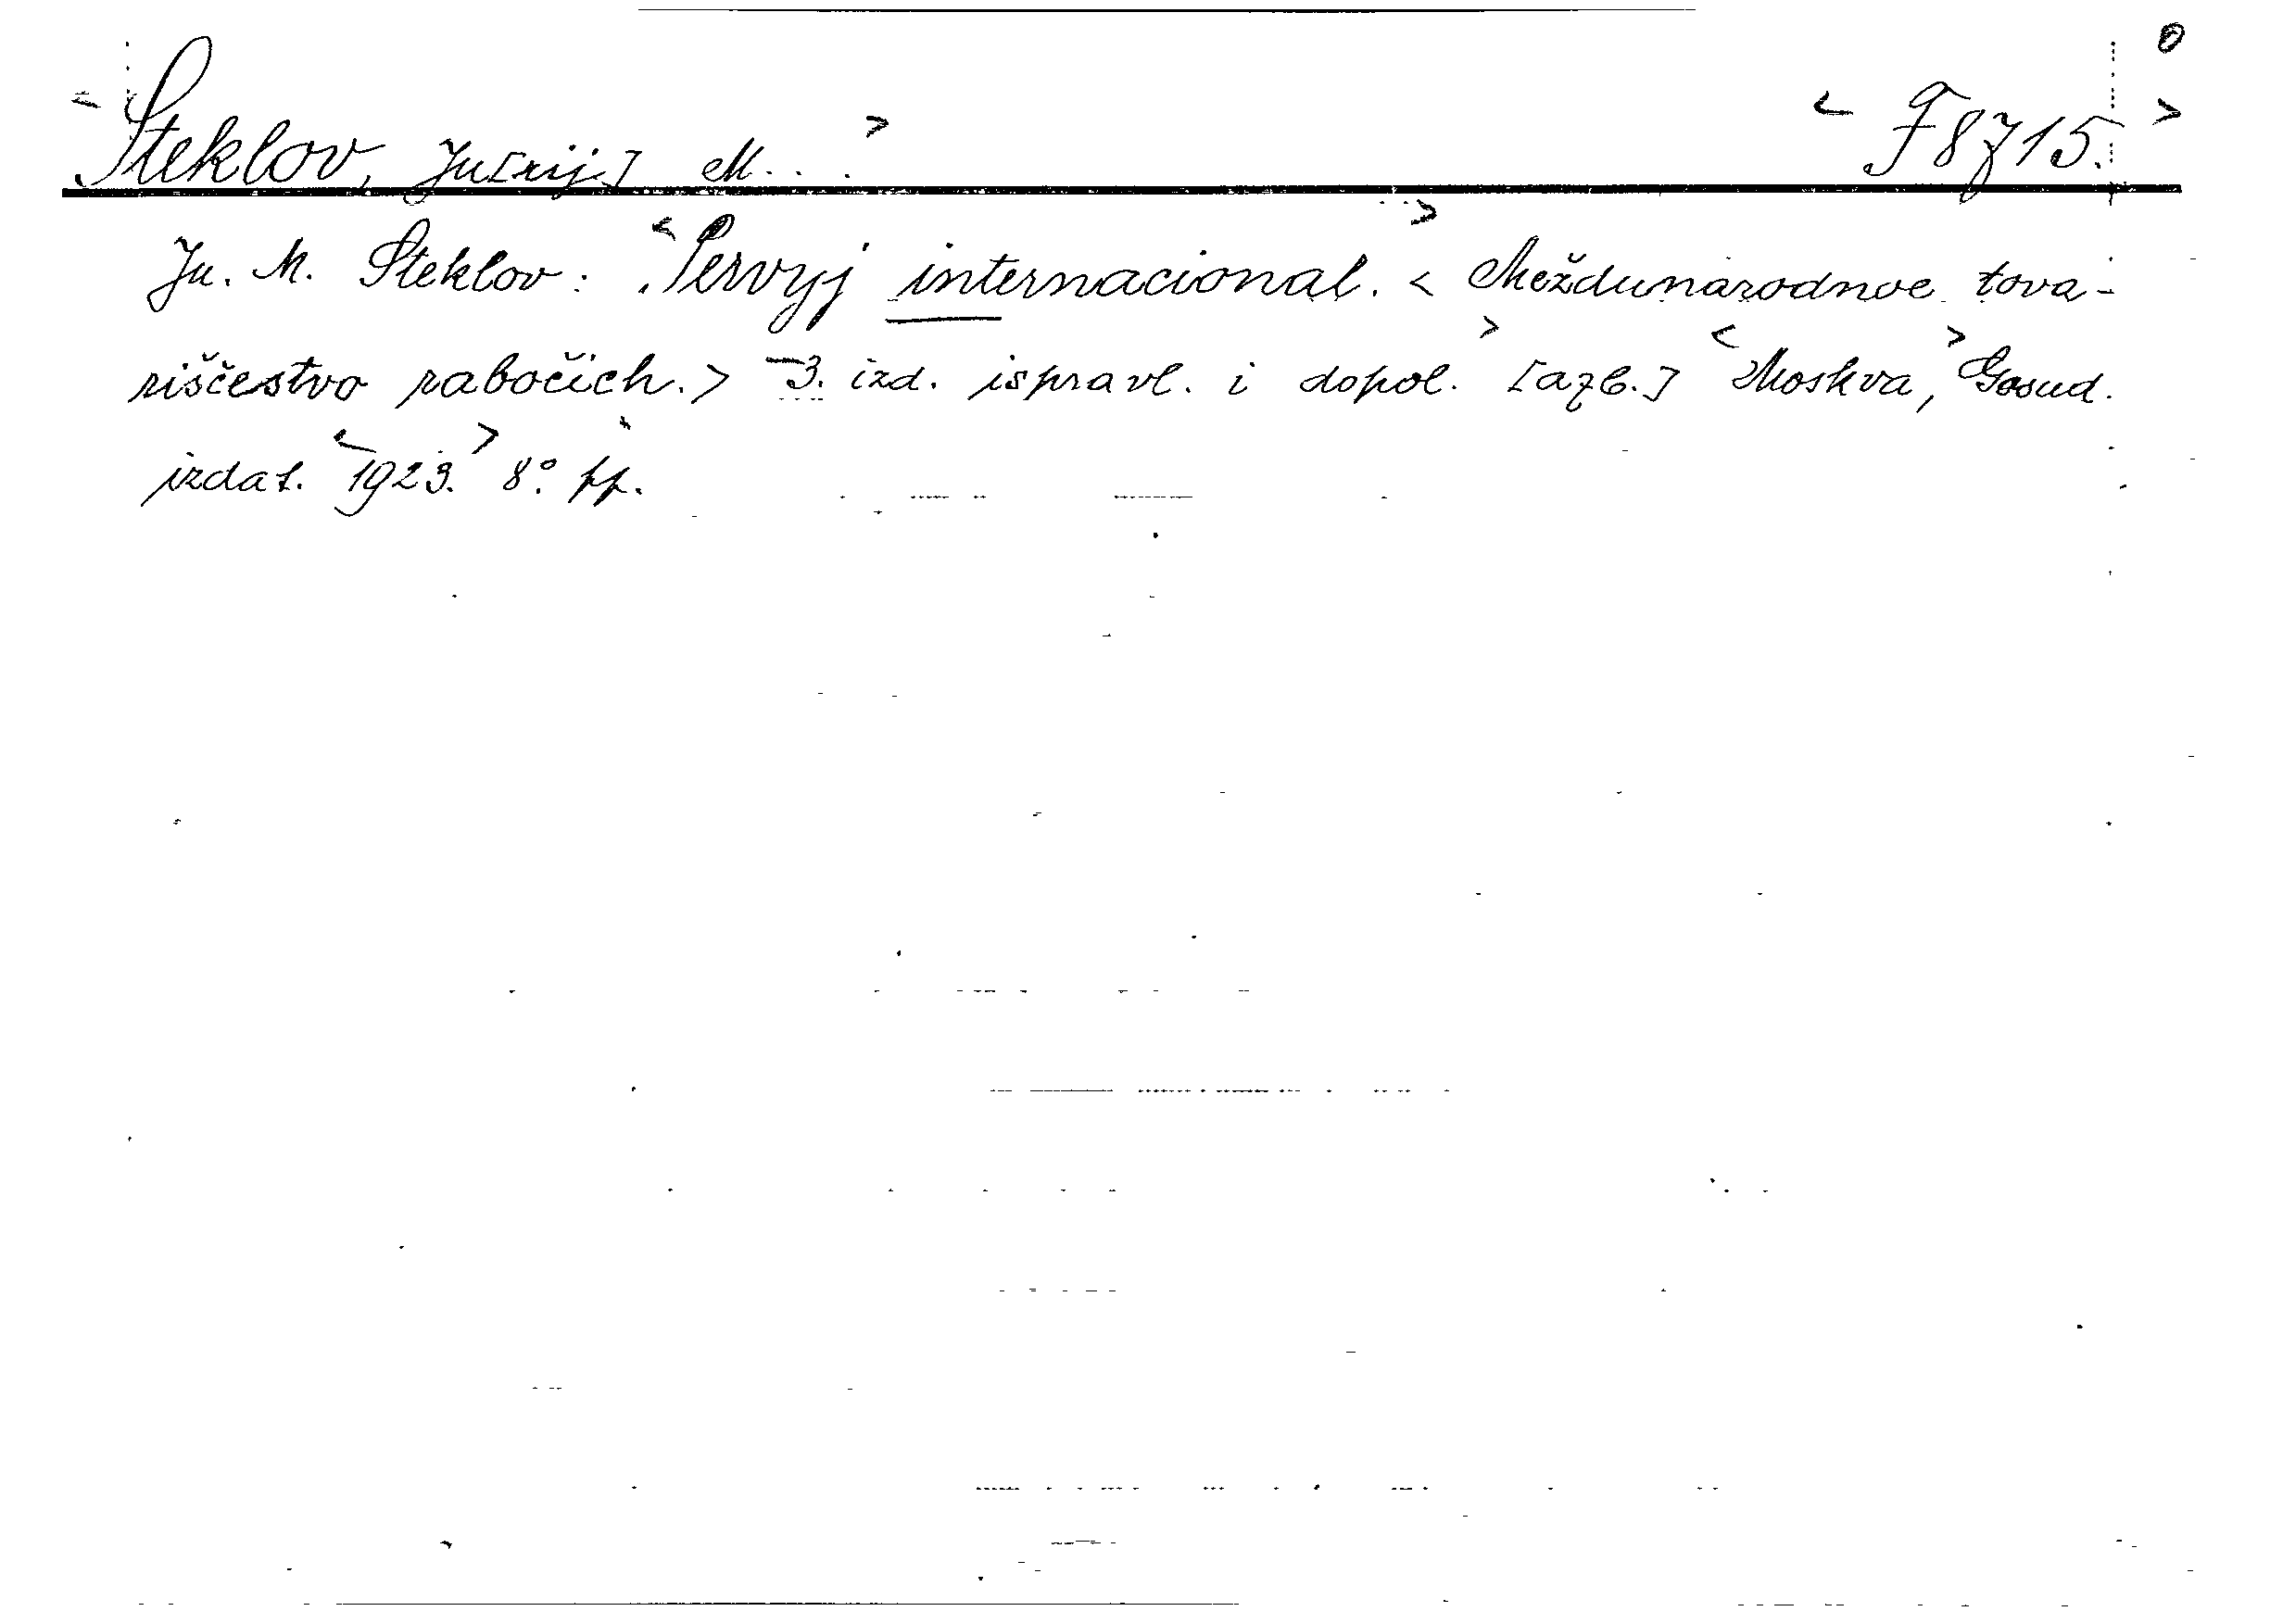 Steklov, Ju[rij] M... F8715.
Ju. M. Steklov: Pervyj internacional. < Meždunarodnoe tova-
riščestvo rabočich.> 3. izd. ispravl. i dopol. Moskva, Gosud.
izdat. 1923. 8°.